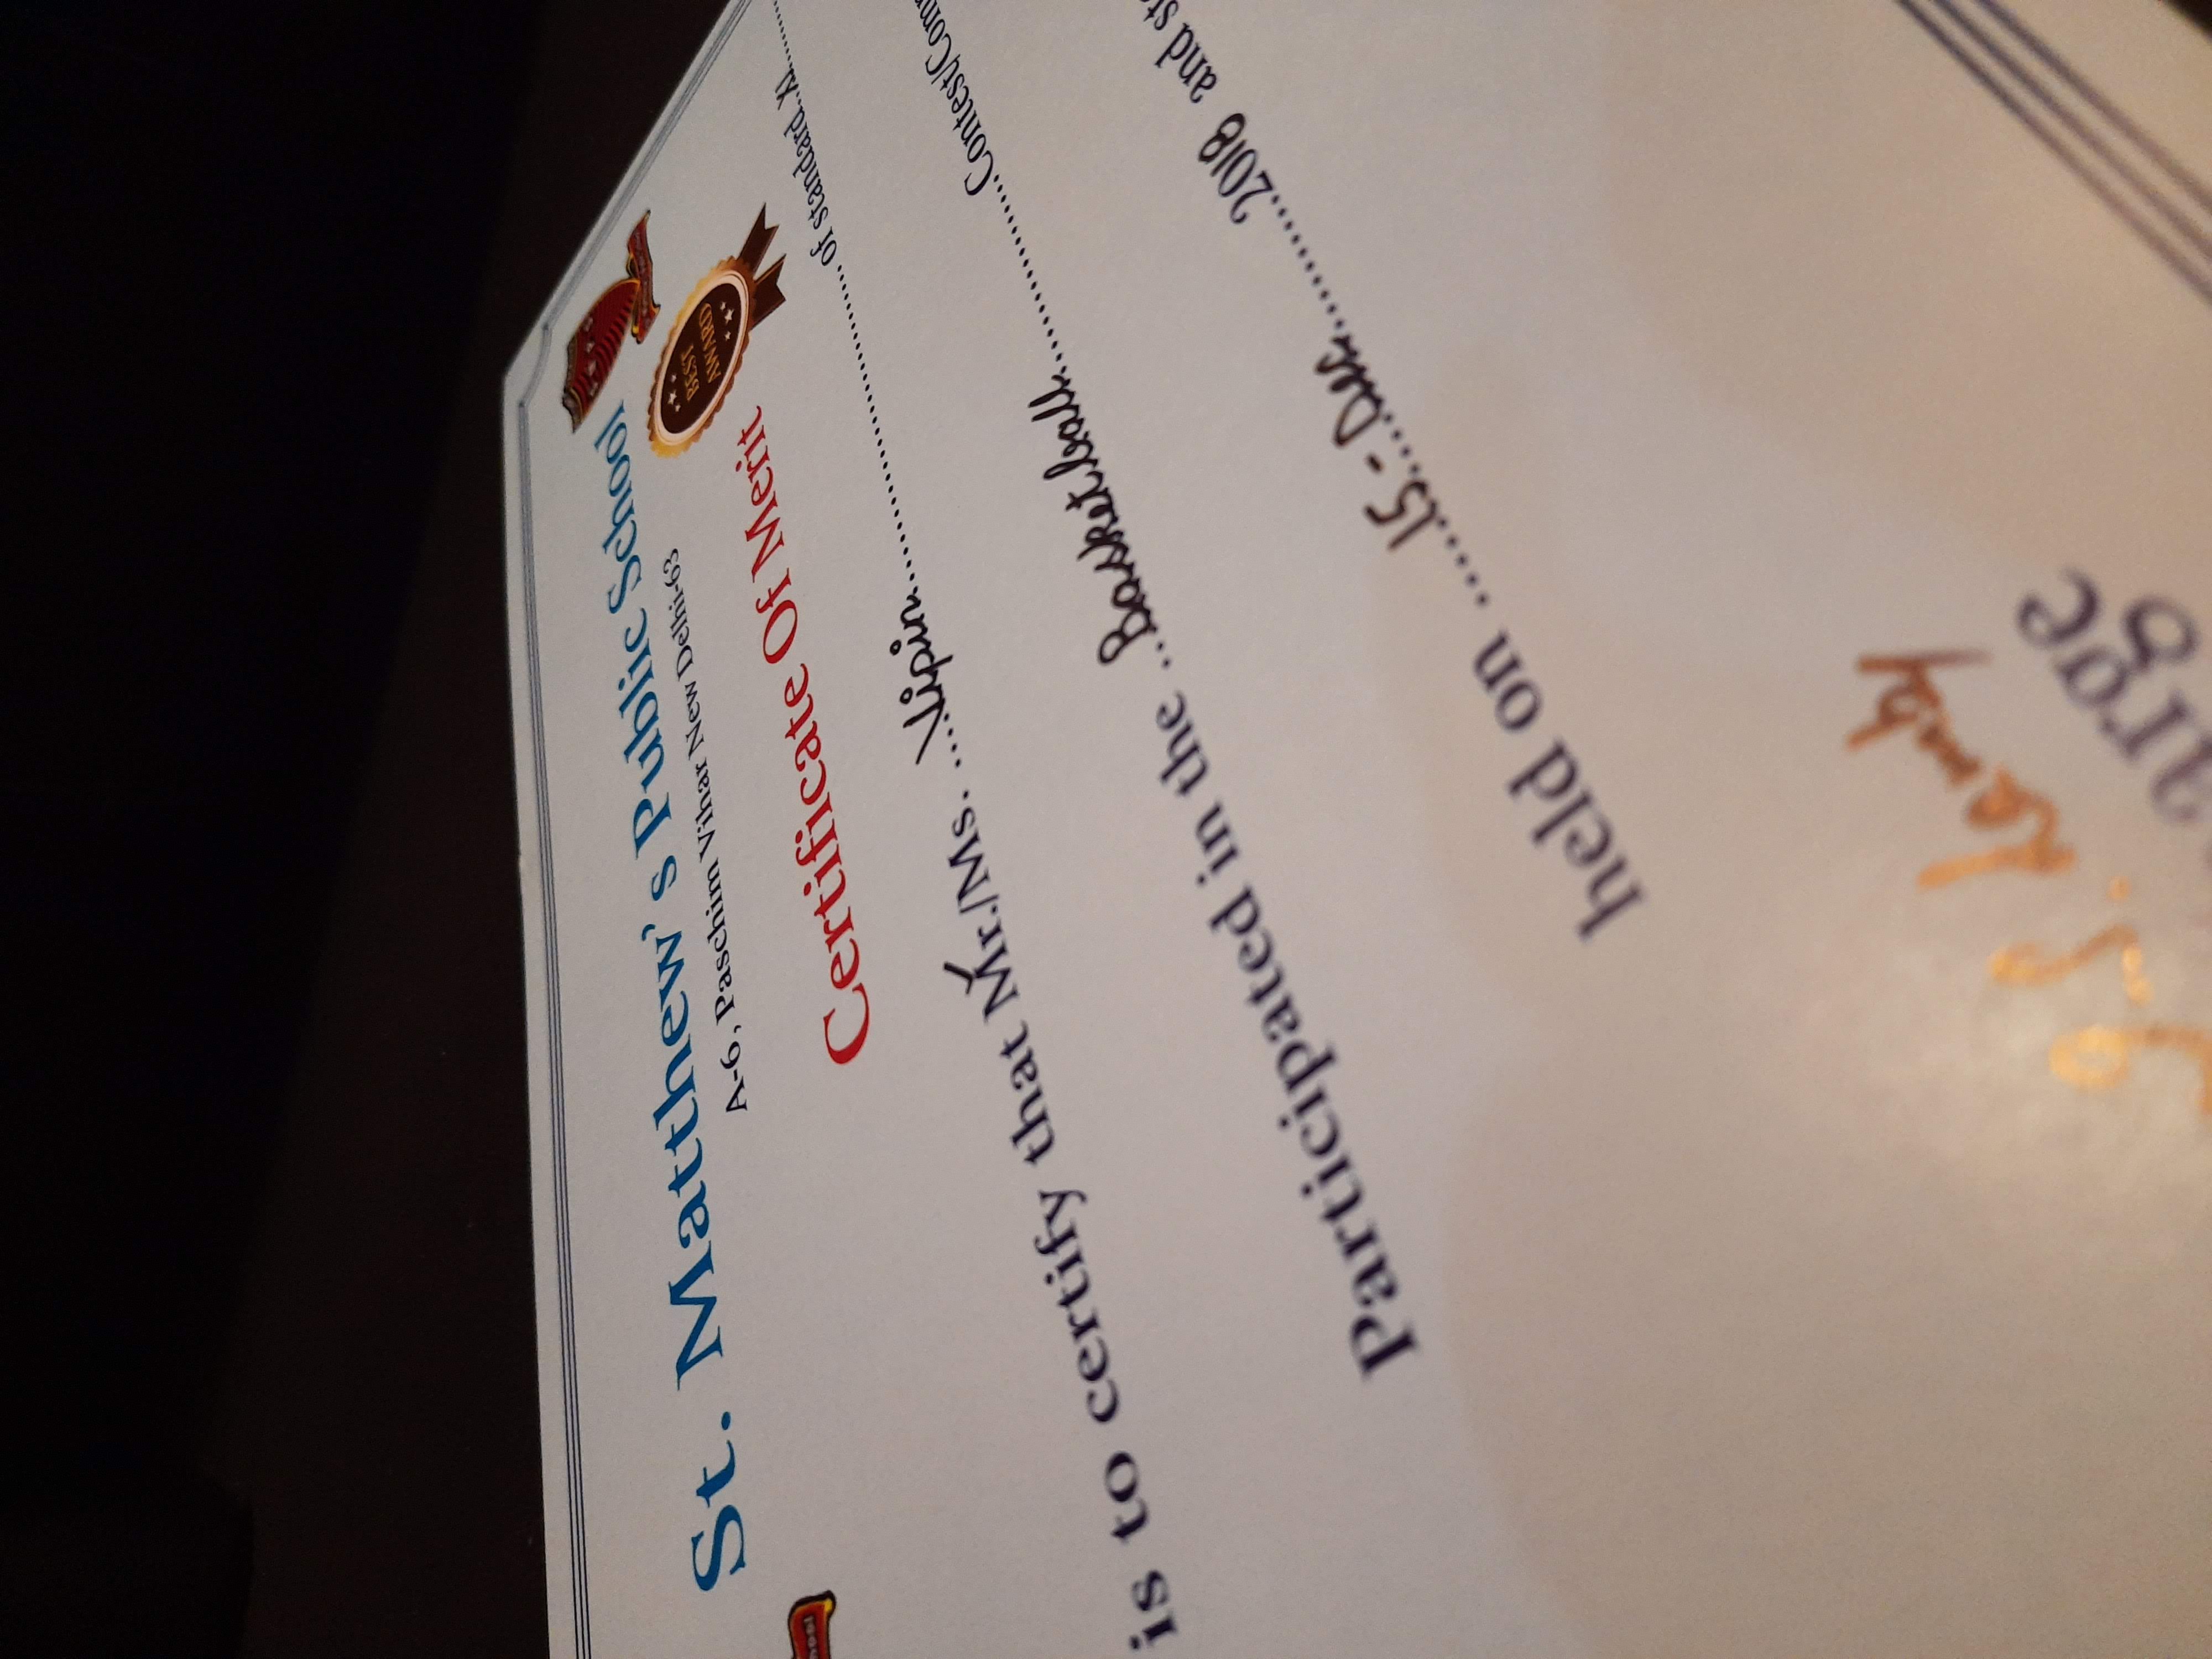 St. Matthew's Public School
A-6, Paschim Vihar New Delhi-63
BEST
AWARD
Certificate Of Merit
is to certify that Mr./Ms. ....Vipin.................................... of standard..XI..........
Participated in the ..Basketball....................Contest/Com
held on .....15-Dec..........2018 and st
S. Lamby
arge